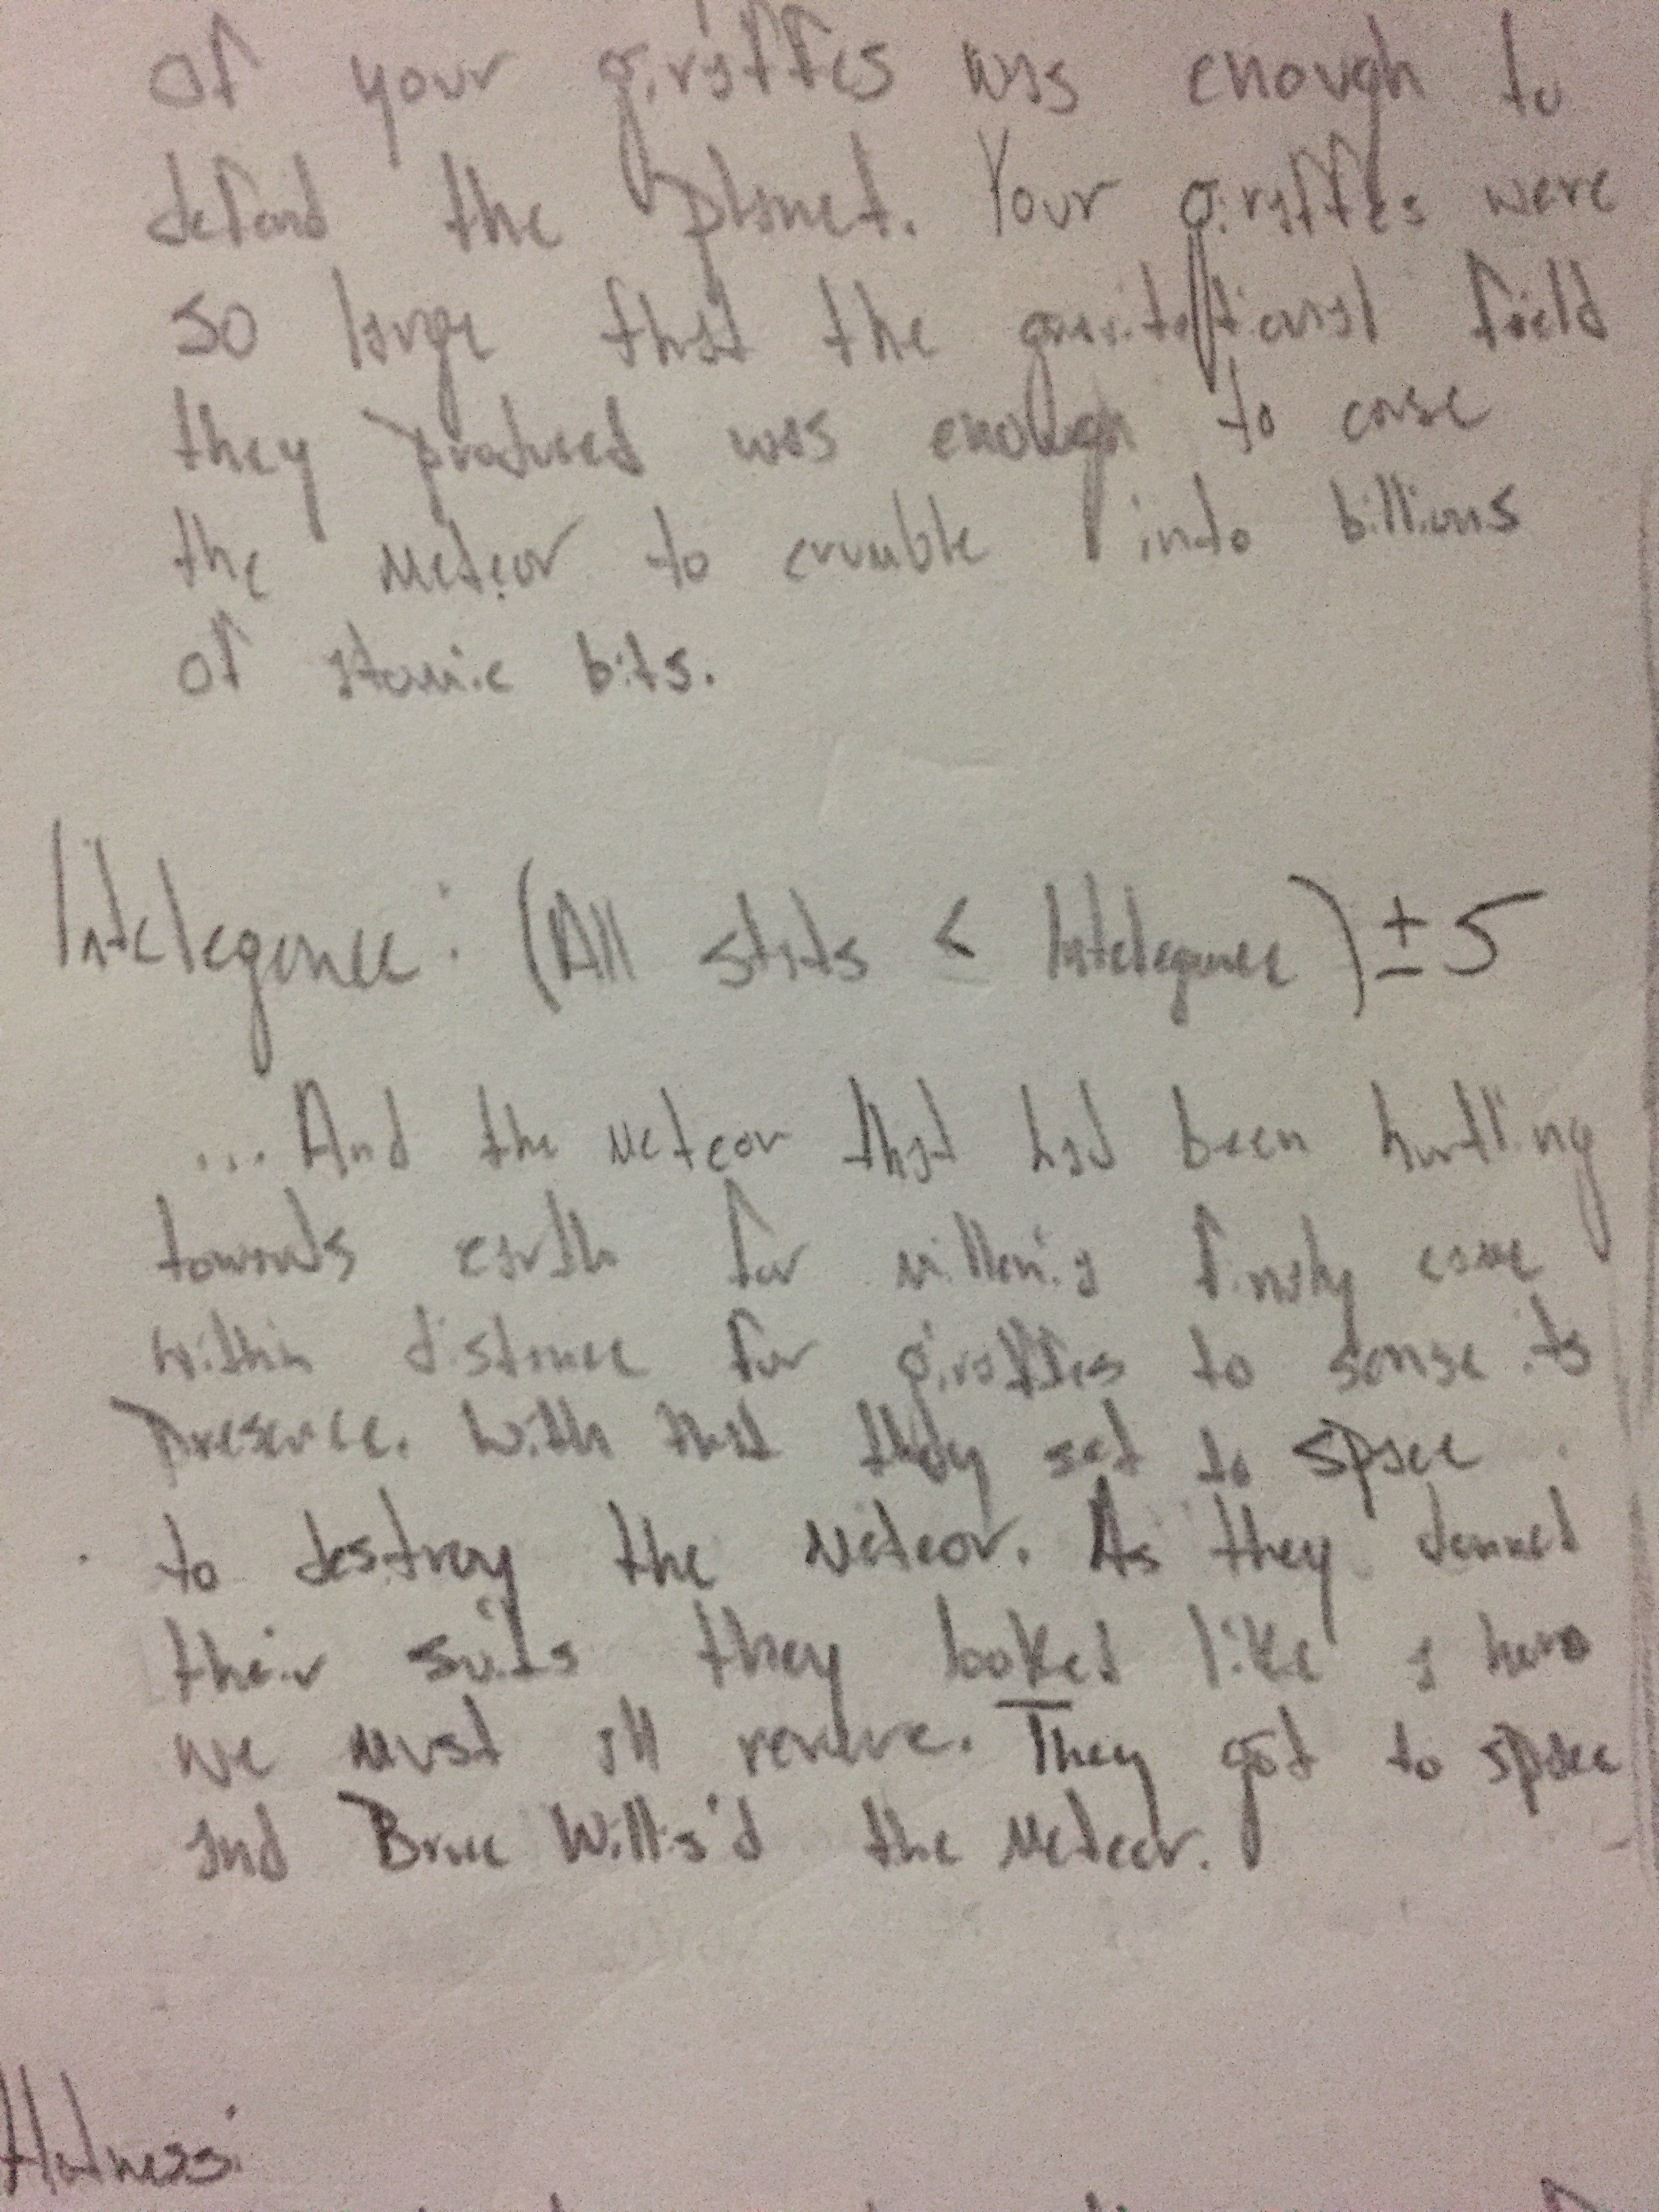 of your giraffes was enough to
defend the planet. Your giraffes were
so large that the gravitational field
they produced was enough to cause
the meteor to crumble into billions
of atomic bits.
Intelegence: (All stats ≤ Intelegence) ± 5
... And the meteor that had been hurtling
towards earth for millenia finaly came
within distance for giraffes to sense its
presence. With that they set to space
to destroy the meteor. As they donned
their suits they looked like a hero
we must all revere. They got to space
and Bruce Willis'd the meteor.
Hotness: